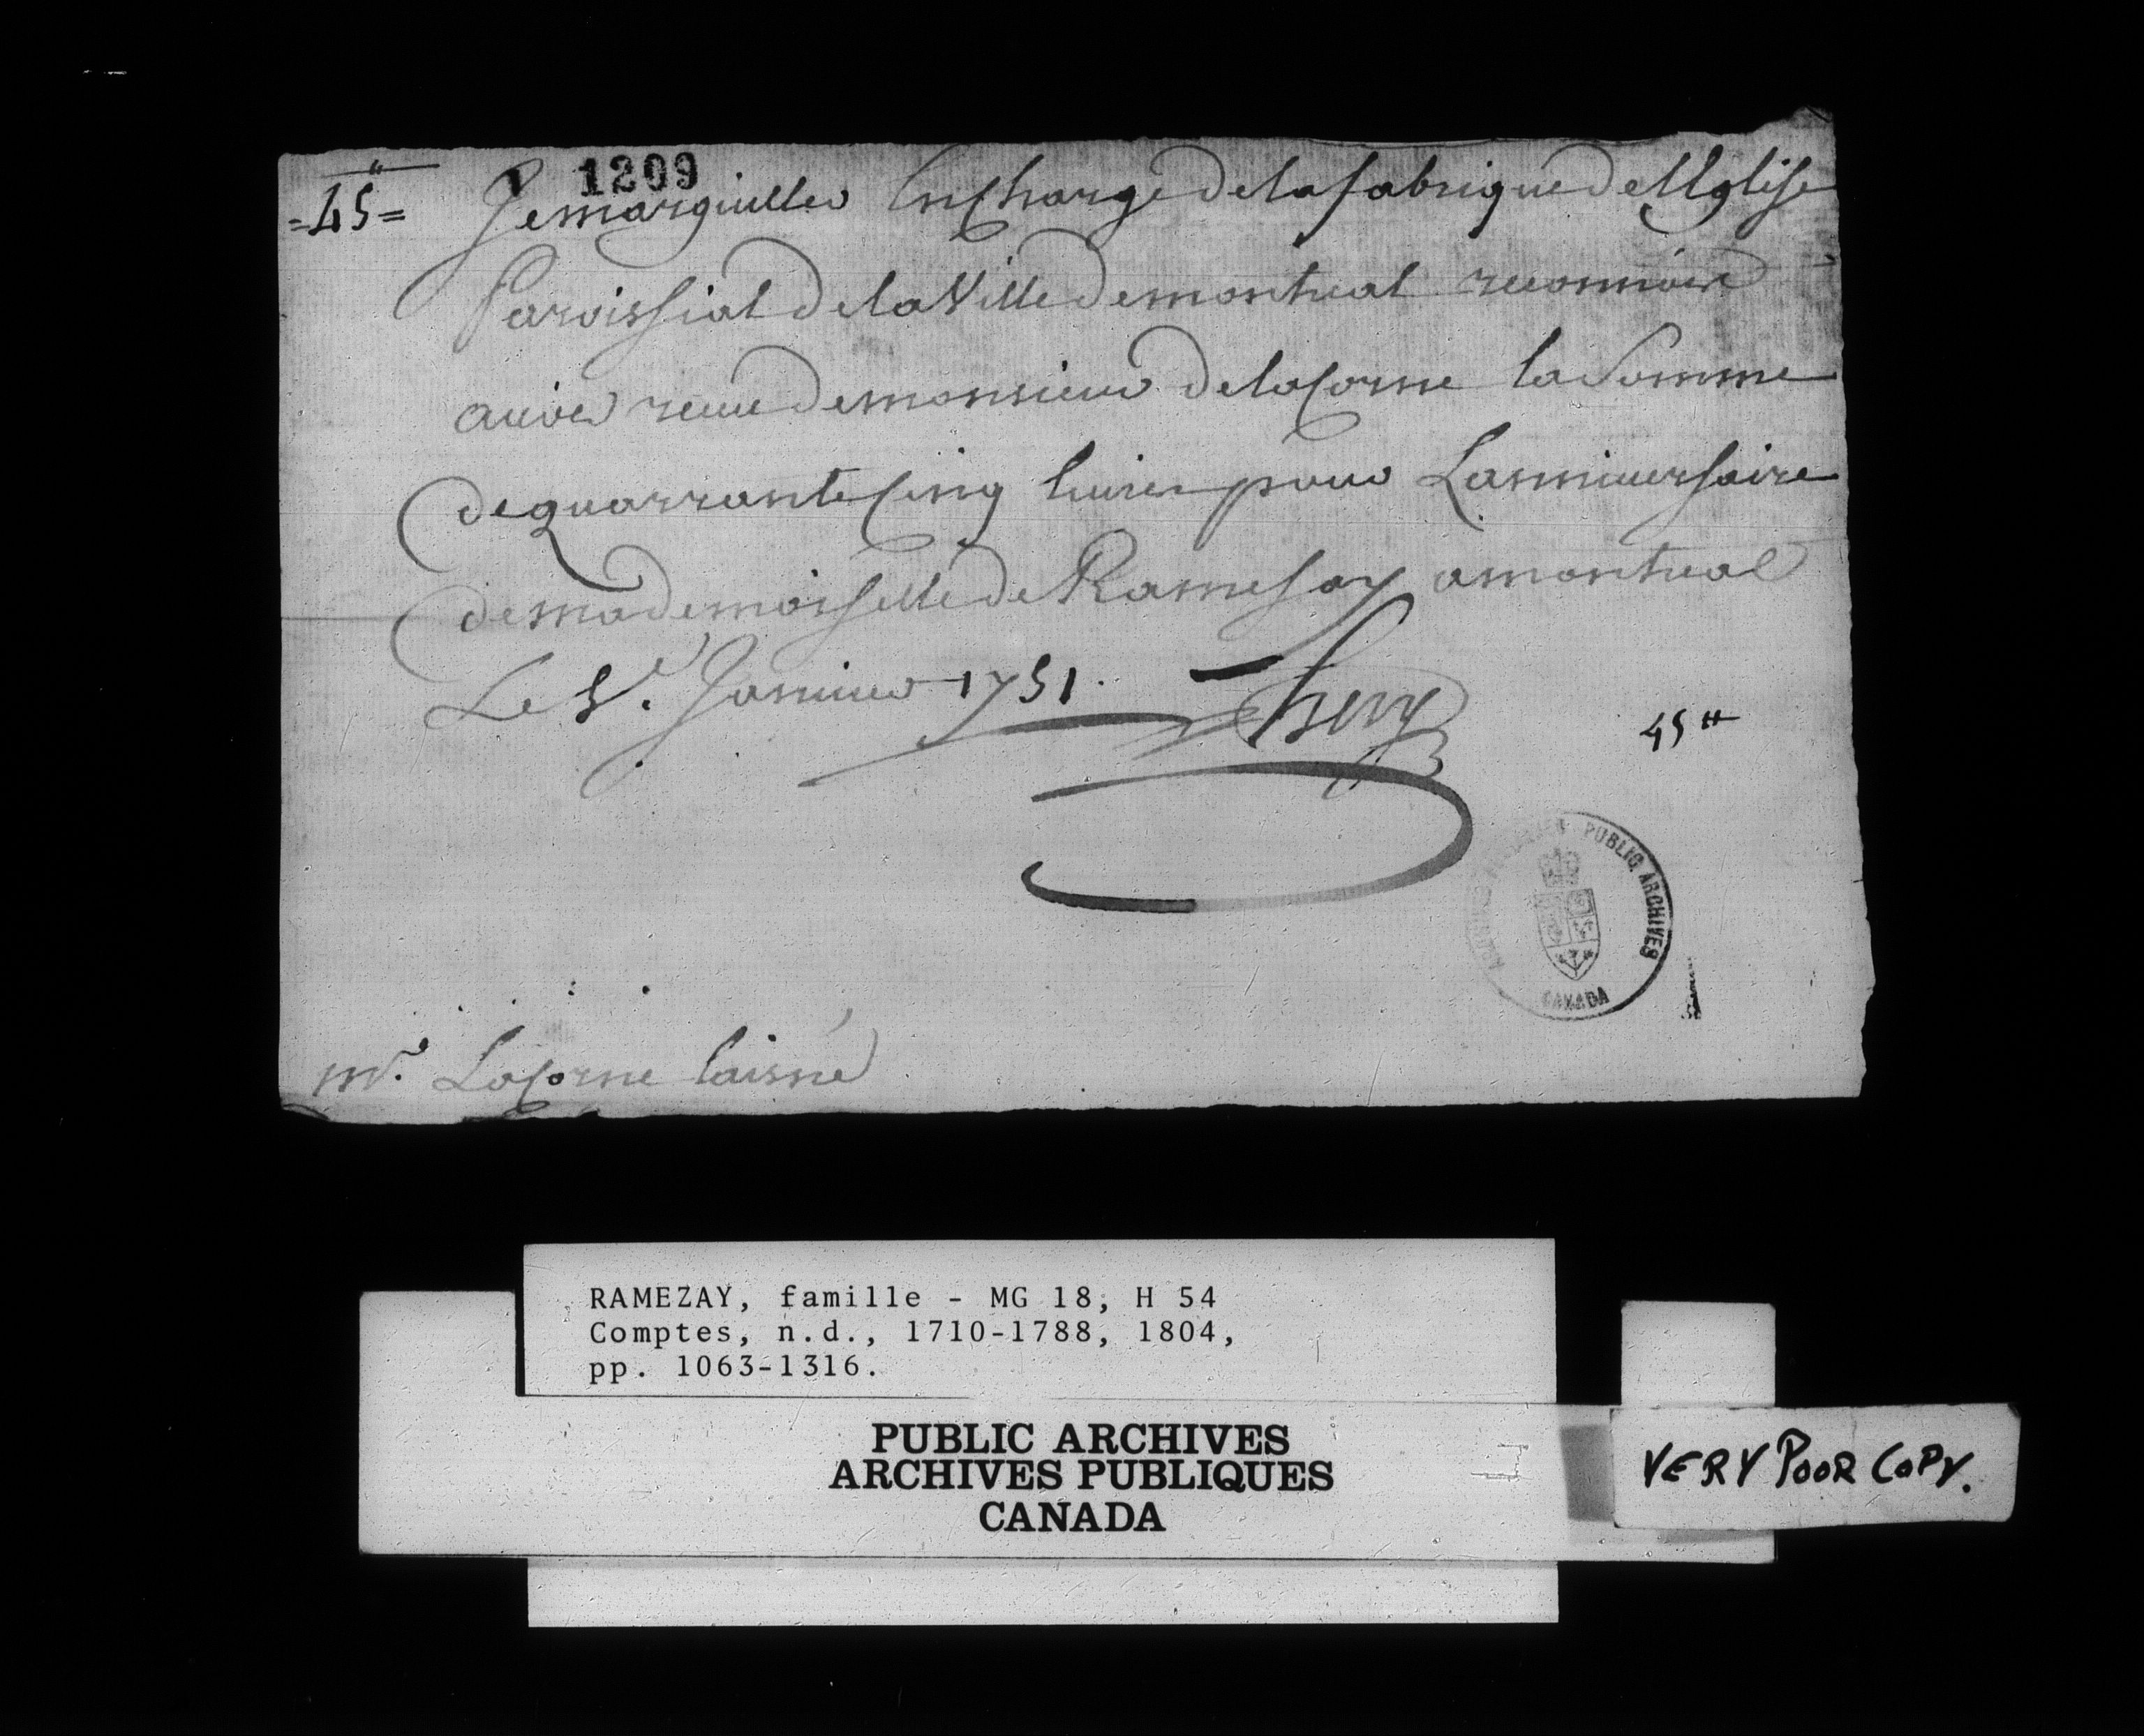 1209
=45"= Je marguiller En Charge de la fabrique de L'Eglise
Paroissial de la Ville de montreal reconnois
auoir receu de monsieur de la Corne la Somme
de quarrante Cinq liures pour L'anniuersaire
de mademoiselle de Ramesay a montreal
Le Januier 1751.
45 tt
PUBLIC ARCHIVES
CANADA
mr. LaCorne laisné
RAMEZAY, famille - MG 18, H 54
Comptes, n.d., 1710-1788, 1804,
pp. 1063-1316.
PUBLIC ARCHIVES
ARCHIVES PUBLIQUES
CANADA
VERY POOR COPY.